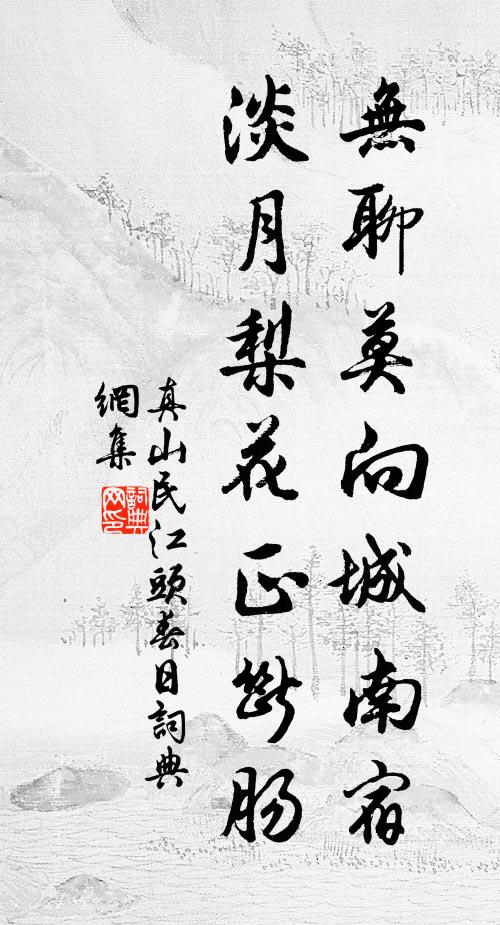 無聊莫向城南宿
淡月梨花正斷腸
真山民江頭春日詞典
網集
詞典
网印